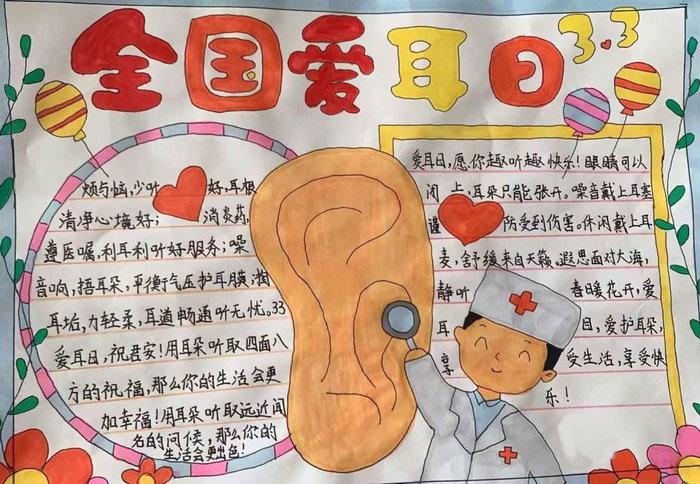 全国爱耳日 3.3
烦与恼,少听 好,耳根
清净心境好; 消炎药,
遵医嘱,利耳利听好服务;噪
音响,捂耳朵,平衡气压护耳膜,掏
耳垢,力轻柔,耳道畅通听无忧。33
爱耳日,祝君安!用耳朵听取四面八
方的祝福,那么你的生活会更
加幸福!用耳朵听取远近闻
名的问候,那么你的
生活会更出色!
爱耳日,愿你趣听趣快乐!眼睛可以
闭上,耳朵只能张开。噪音戴上耳塞
谨 防受到伤害。休闲戴上耳
麦,舒缓来自天籁。遐思面对大海,
静听 春暖花开,爱
耳 日,爱护耳朵,
享 受生活,享受快
乐!